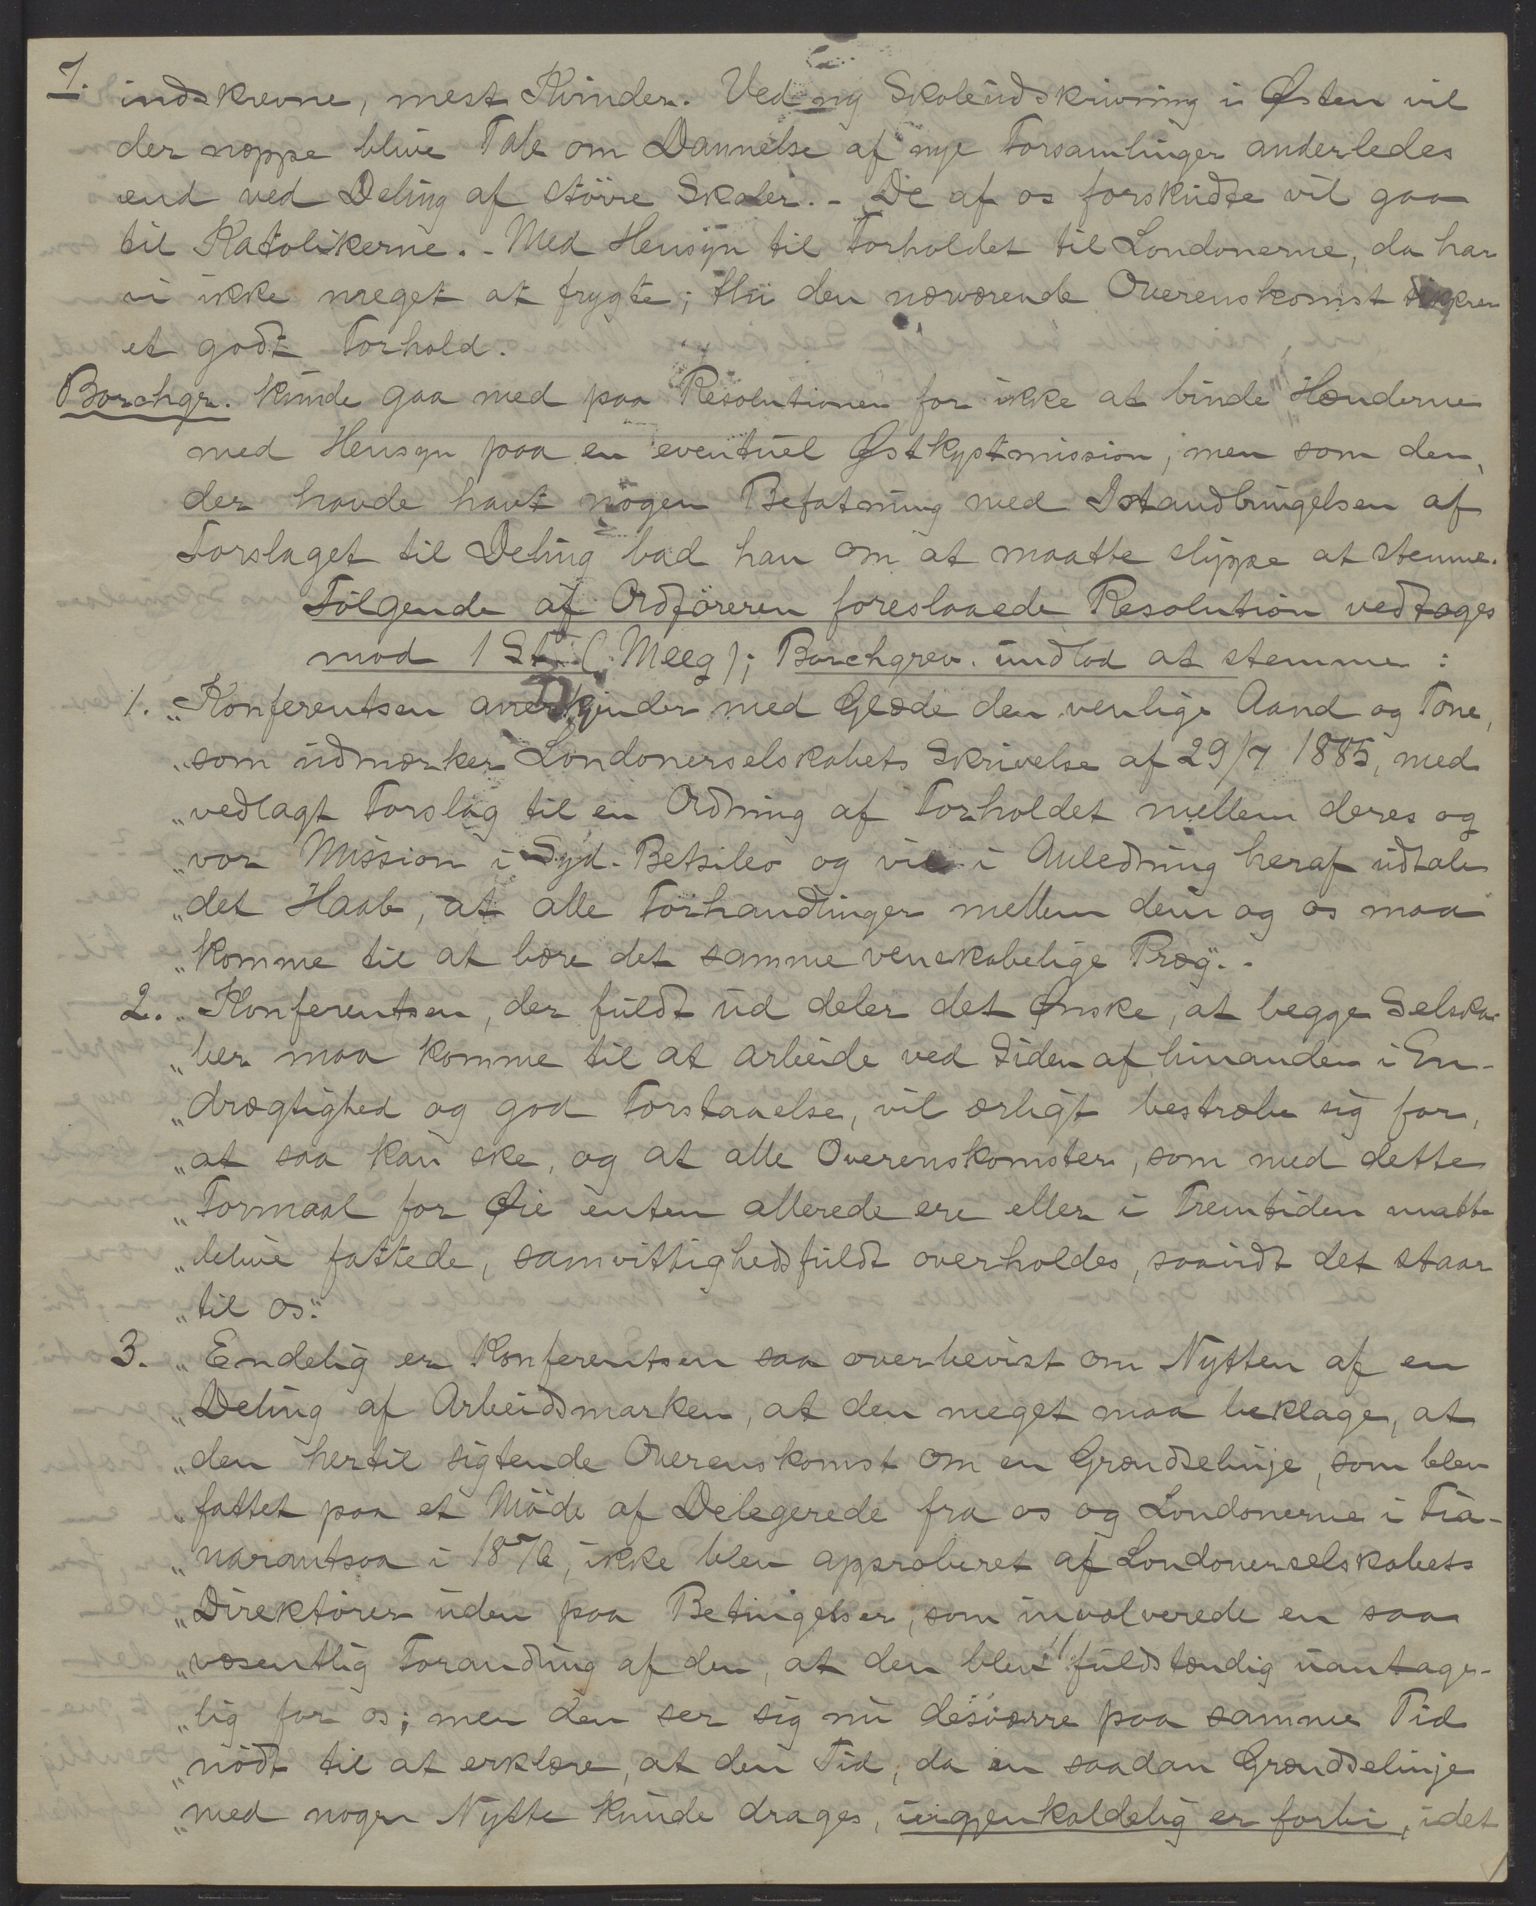 7. indskrevne, mest Kvinder. Ved ny Skoleudskrivning i Østen vil
der neppe blive Tale om Dannelse af nye Forsamlinger anderledes
end ved Deling af større Skoler. - De af os forskudte vil gaa
til Katolikerne. - Med Hensyn til Forholdet til Londonerne, da har
vi ikke meget at frygte; thi den nærværende Overenskomst sikkrer
et godt Forhold.
Borchgr. kunde gaa med paa Resolutionen for ikke at binde Hænderne
med Hensyn paa en eventuel Østkystmission, men som den,
der havde havt nogen Befatning med Istandbringelsen af
Forslaget til Deling bad han om at maatte slippe at stemme.
Følgende af Ordføreren foreslaaede Resolution vedtages
mod 1 St. (Meeg); Borchgrev. undlod at stemme:
1. „Konferentsen anerkjender med Glæde den venlige Aand og Tone,
„som udmærker Londonerselskabets Skrivelse af 29/7 1885, med
„vedlagt Forslag til en Ordning af Forholdet mellem deres og
„vor Mission i Syd-Betsileo og vil i Anledning heraf udtale
„det Haab, at alle Forhandlinger mellem dem og os maa
„komme til at bære det samme venskabelige Præg". -
2. „Konferentsen, der fuldt ud deler det Ønske, at begge Selska-
„ber maa komme til at arbeide ved Siden af hinanden i En-
„drægtighed og god Forstaaelse, vil ærligt bestræbe sig for,
„at saa kan ske, og at alle Overenskomster, som med dette
„Formaal for Øie enten allerede ere eller i Fremtiden maatte
„blive fattede, samvittighedsfuldt overholdes, saavidt det staar
„til os."
3. „Endelig er Konferentsen saa overbevist om Nytten af en
„Deling af Arbeidsmarken, at den meget maa beklage, at
„den hertil sigtende Overenskomst om en Grændselinje, som blev
„fattet paa et Møde af Delegerede fra os og Londonerne i Fia-
„narantsoa i 1876, ikke blev approberet af Londonerselskabets
„Direktører uden paa Betingelser, som involverede en saa
„væsentlig Forandring af den, at den blev fuldstændig uantage-
„lig for os; men den ser sig nu desværre paa samme Tid
„nødt til at erklære, at den Tid, da en saadan Grændselinje
„med nogen Nytte kunde drages, uigjenkaldelig er forbi, idet